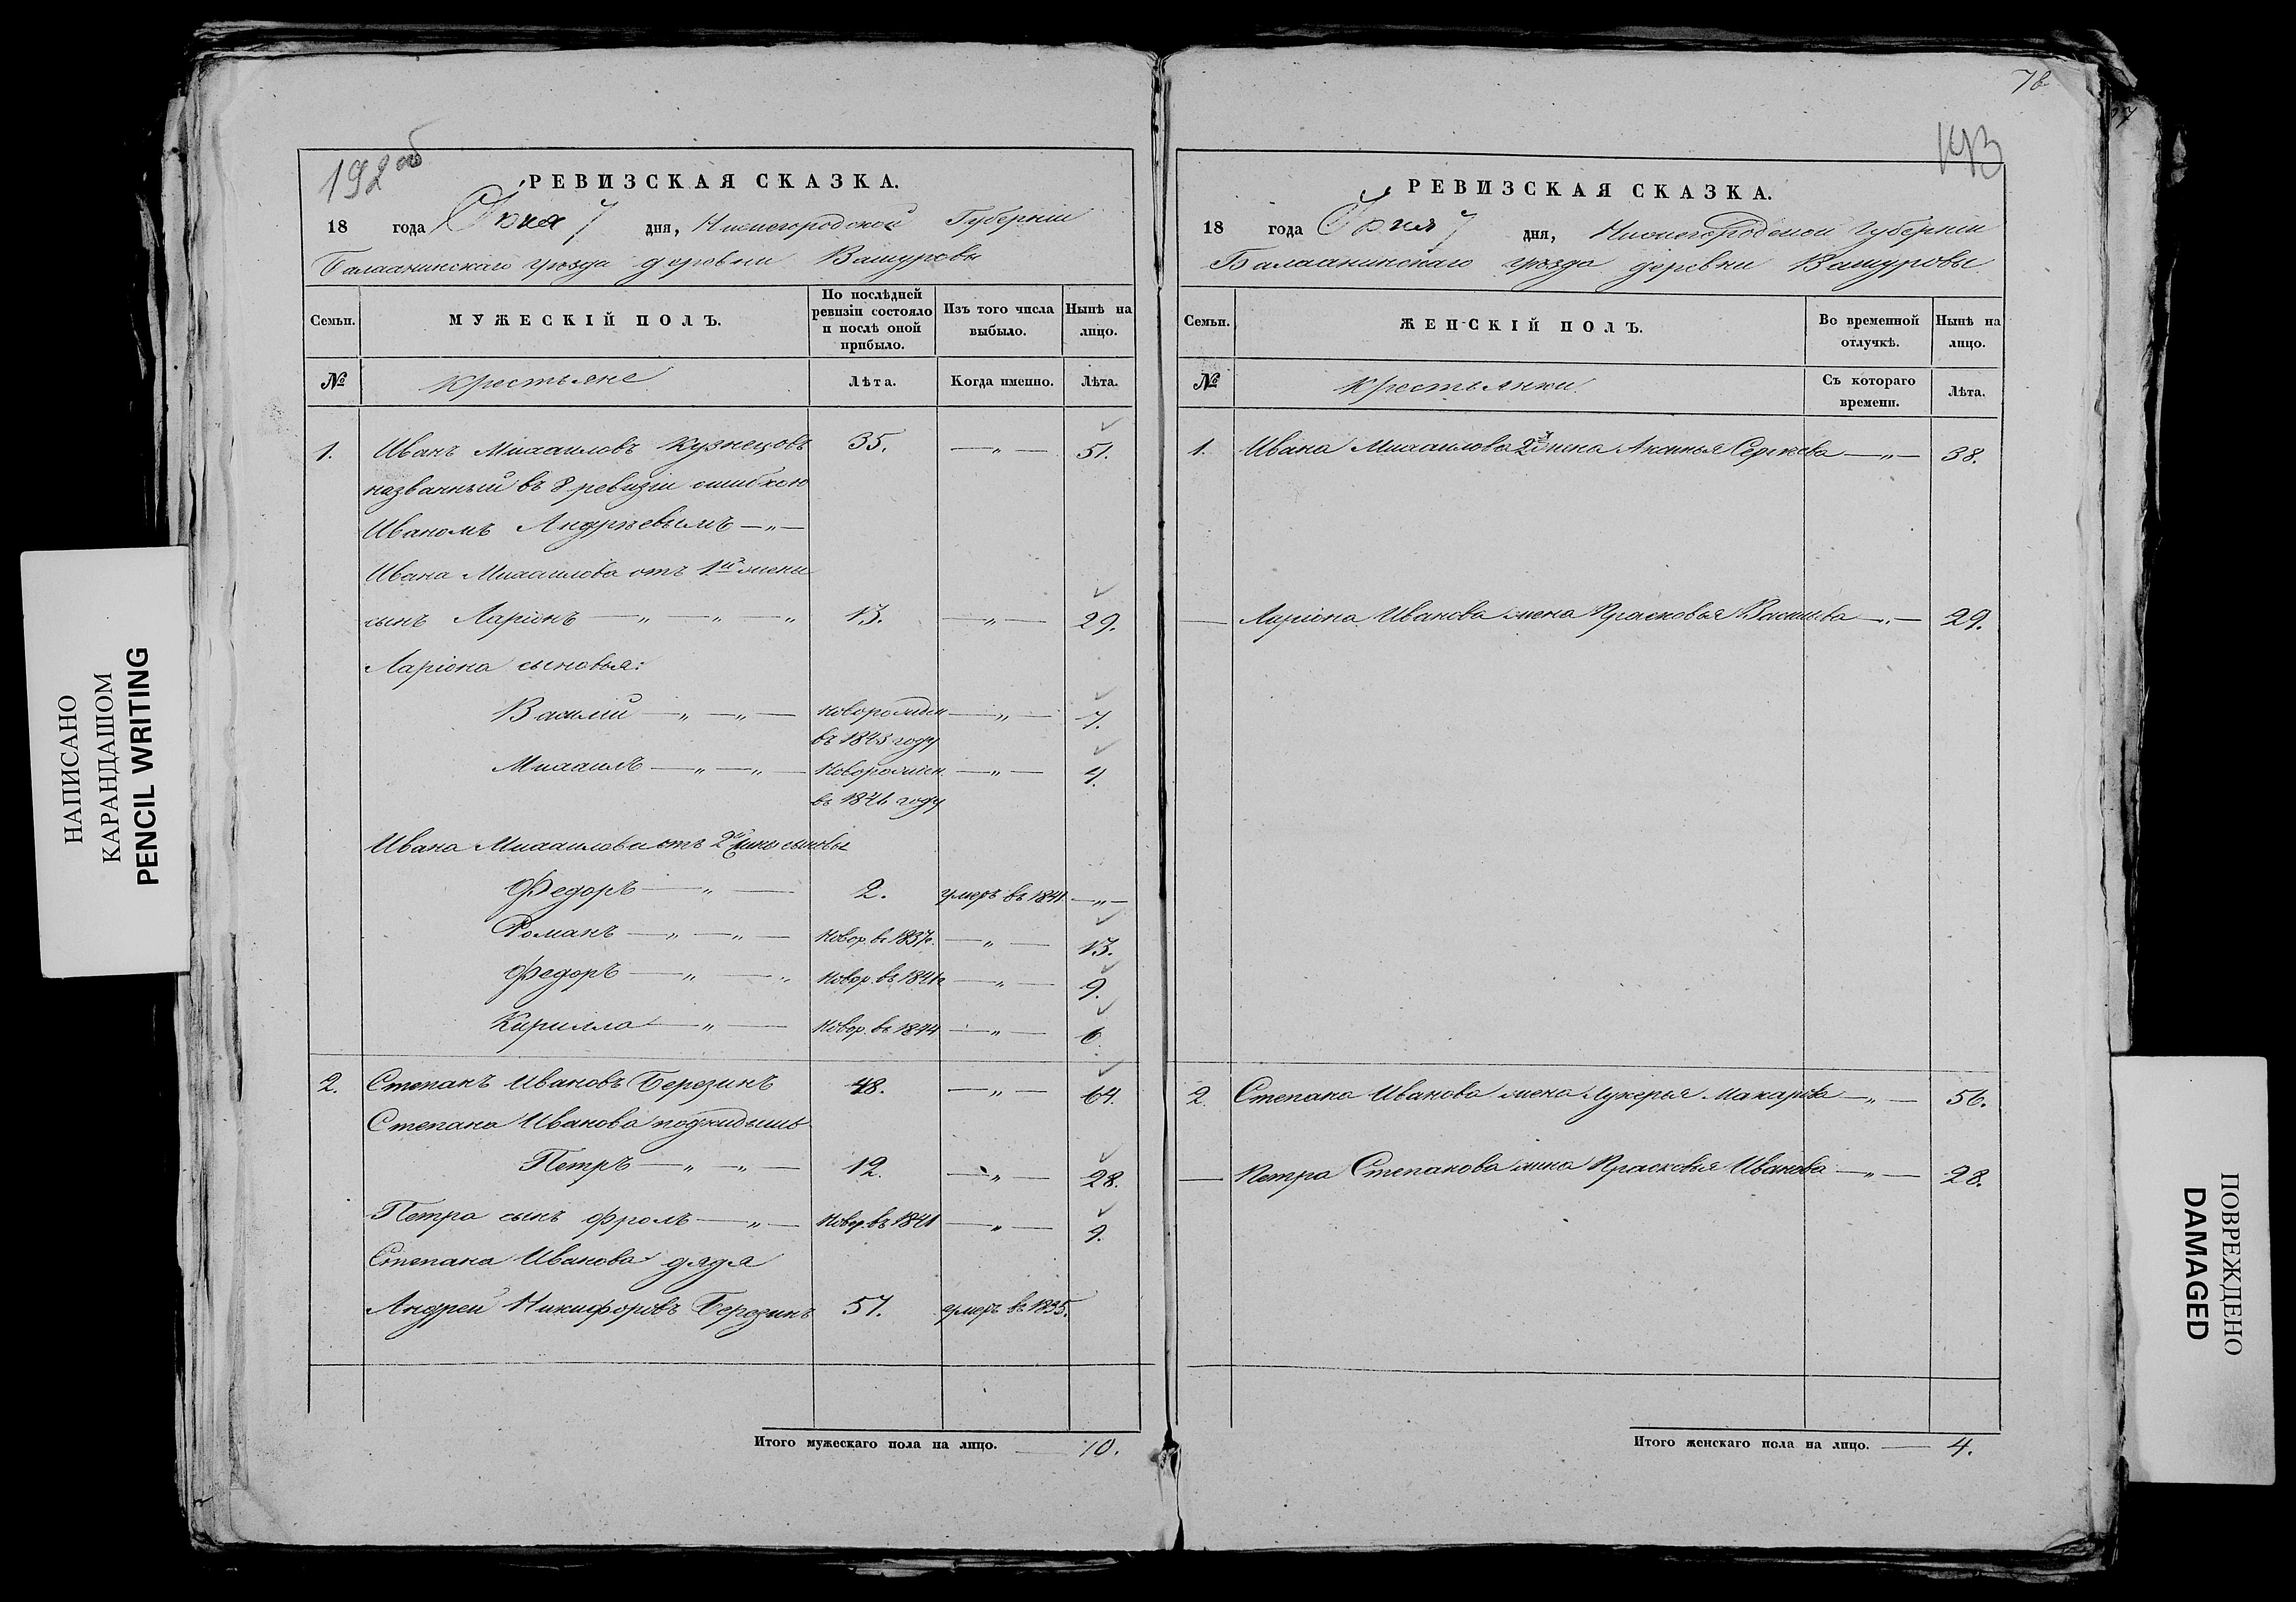 192 об
РЕВИЗСКАЯ СКАЗКА.
18 года Іюня 7 дня, Нижегородской Губерніи
Балахнинскаго уѣзда деревни Вашуровы
Семьи.
МУЖЕСКІЙ ПОЛЪ.
По послѣдней ревизіи состояло и послѣ оной прибыло.
Изъ того числа выбыло.
Нынѣ на лицо.
№ Крестьяне Лѣта. Когда именно. Лѣта.
1. Иванъ Михаиловъ Кузнецовъ 35. —„— 51.
названный въ 8 ревизіи ошибкою
Иваномъ Андрѣевымъ —„—
Ивана Михаилова отъ 1й жены
сынъ Ларіонъ —„—„—„ 13. —„— 29.
Ларіона сыновья:
Василій —„—„— новорожден —„— 7.
въ 1843 году
Михаилъ —„—„— новорожден. —„— 4.
въ 1846 году
Ивана Михаилова отъ 2й жены сыновья
Федоръ —„— 2. умеръ въ 1841 —„—
Романъ —„—„— Новор. въ 1837г. —„— 13.
Федоръ —„—„ Новор. въ 1841г —„— 9.
Кирилла —„— Новор. въ 1844 —„— 6
2. Степанъ Ивановъ Березинъ 48. —„— 64.
Степана Иванова подкидышъ
Петръ —„—„— 12. —„— 28.
Петра сынъ Фролъ —„— Новор. въ 1841 —„— 9.
Степана Иванова дядя
Андрей Никифоровъ Березинъ 57. умеръ въ 1835.
Итого мужескаго пола на лицо. — 10.
78
193
РЕВИЗСКАЯ СКАЗКА.
18 года Іюня 7 дня, Нижегородской Губерніи
Балахнинскаго уѣзда деревни Вашуровы
Семьи.
ЖЕНСКІЙ ПОЛЪ.
Во временной отлучкѣ.
Нынѣ на лицо.
№ Крестьянки. Съ котораго времени. Лѣта.
1. Ивана Михаилова 2я жена Аксинья Сергѣева —„— 38.
— Ларіона Иванова жена Прасковья Васильева —„— 29.
2. Степана Иванова жена Лукерья Макарова —„— 56.
— Петра Степанова жена Прасковья Иванова —„— 28.
Итого женскаго пола на лицо. — 4.
НАПИСАНО
КАРАНДАШОМ
PENCIL WRITING
ПОВРЕЖДЕНО
DAMAGED